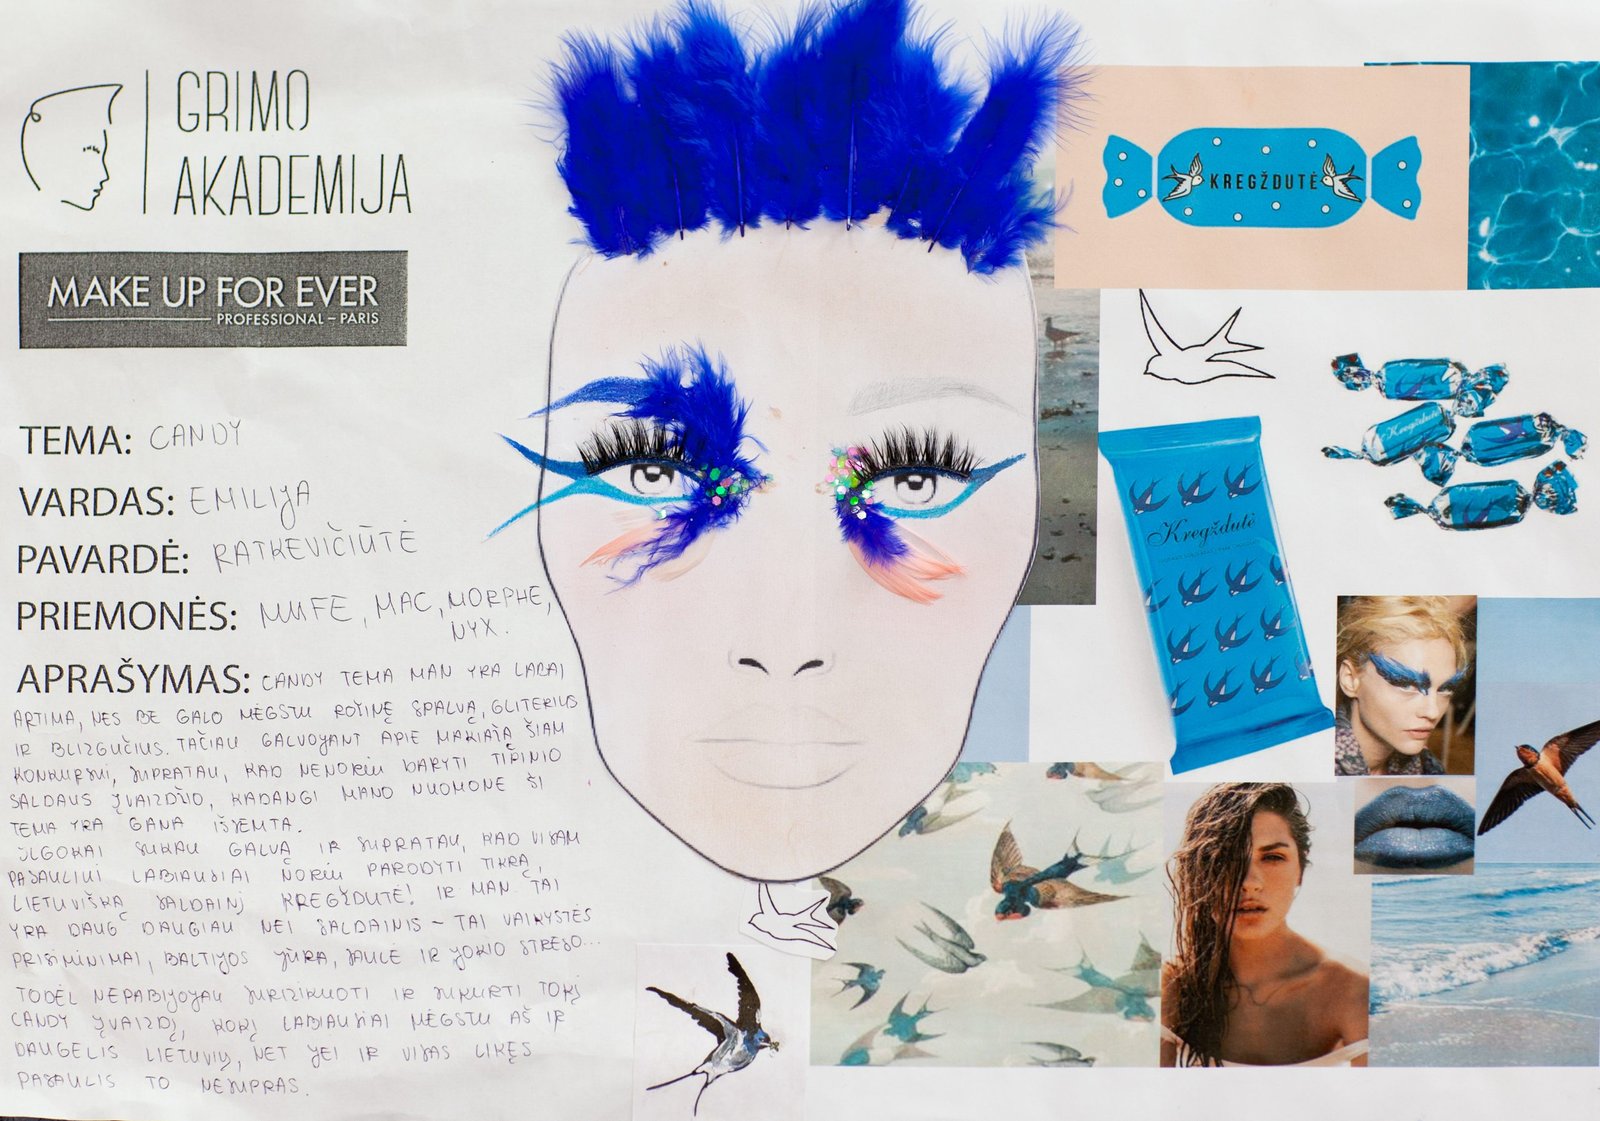 GRIMO
AKADEMIJA
MAKE UP FOR EVER
PROFESSIONAL – PARIS
TEMA: CANDY
VARDAS: EMILIJA
PAVARDĖ: RATKEVIČIŪTĖ
PRIEMONĖS: MUFE, MAC, MORPHE,
NYX.
APRAŠYMAS: CANDY TEMA MAN YRA LABAI
ARTIMA, NES BE GALO MĖGSTU ROŽINĘ SPALVĄ, GLITERIUS
IR BLIZGUČIUS. TAČIAU GALVOJANT APIE MAKIAŽĄ ŠIAM
KONKURSUI, SUPRATAU, KAD NENORIU DARYTI TIPINIO
SALDAUS ĮVAIZDŽIO, KADANGI MANO NUOMONE ŠI
TEMA YRA GANA IŠSEMTA.
ILGOKAI SUKAU GALVĄ IR SUPRATAU, KAD VISAM
PASAULIUI LABIAUSIAI NORIU PARODYTI TIKRĄ,
LIETUVIŠKĄ SALDAINĮ KREGŽDUTĖ! IR MAN TAI
YRA DAUG DAUGIAU NEI SALDAINIS – TAI VAIKYSTĖS
PRISIMINIMAI, BALTIJOS JŪRA, SAULĖ IR JOKIO STRESO...
TODĖL NEPABIJOJAU SURIZIKUOTI IR SUKURTI TOKĮ
CANDY ĮVAIZDĮ, KOKĮ LABIAUSIAI MĖGSTU AŠ IR
DAUGELIS LIETUVIŲ, NET JEI IR VISAS LIKĘS
PASAULIS TO NESUPRAS.
KREGŽDUTĖ
Kregždutė
Kregždutė